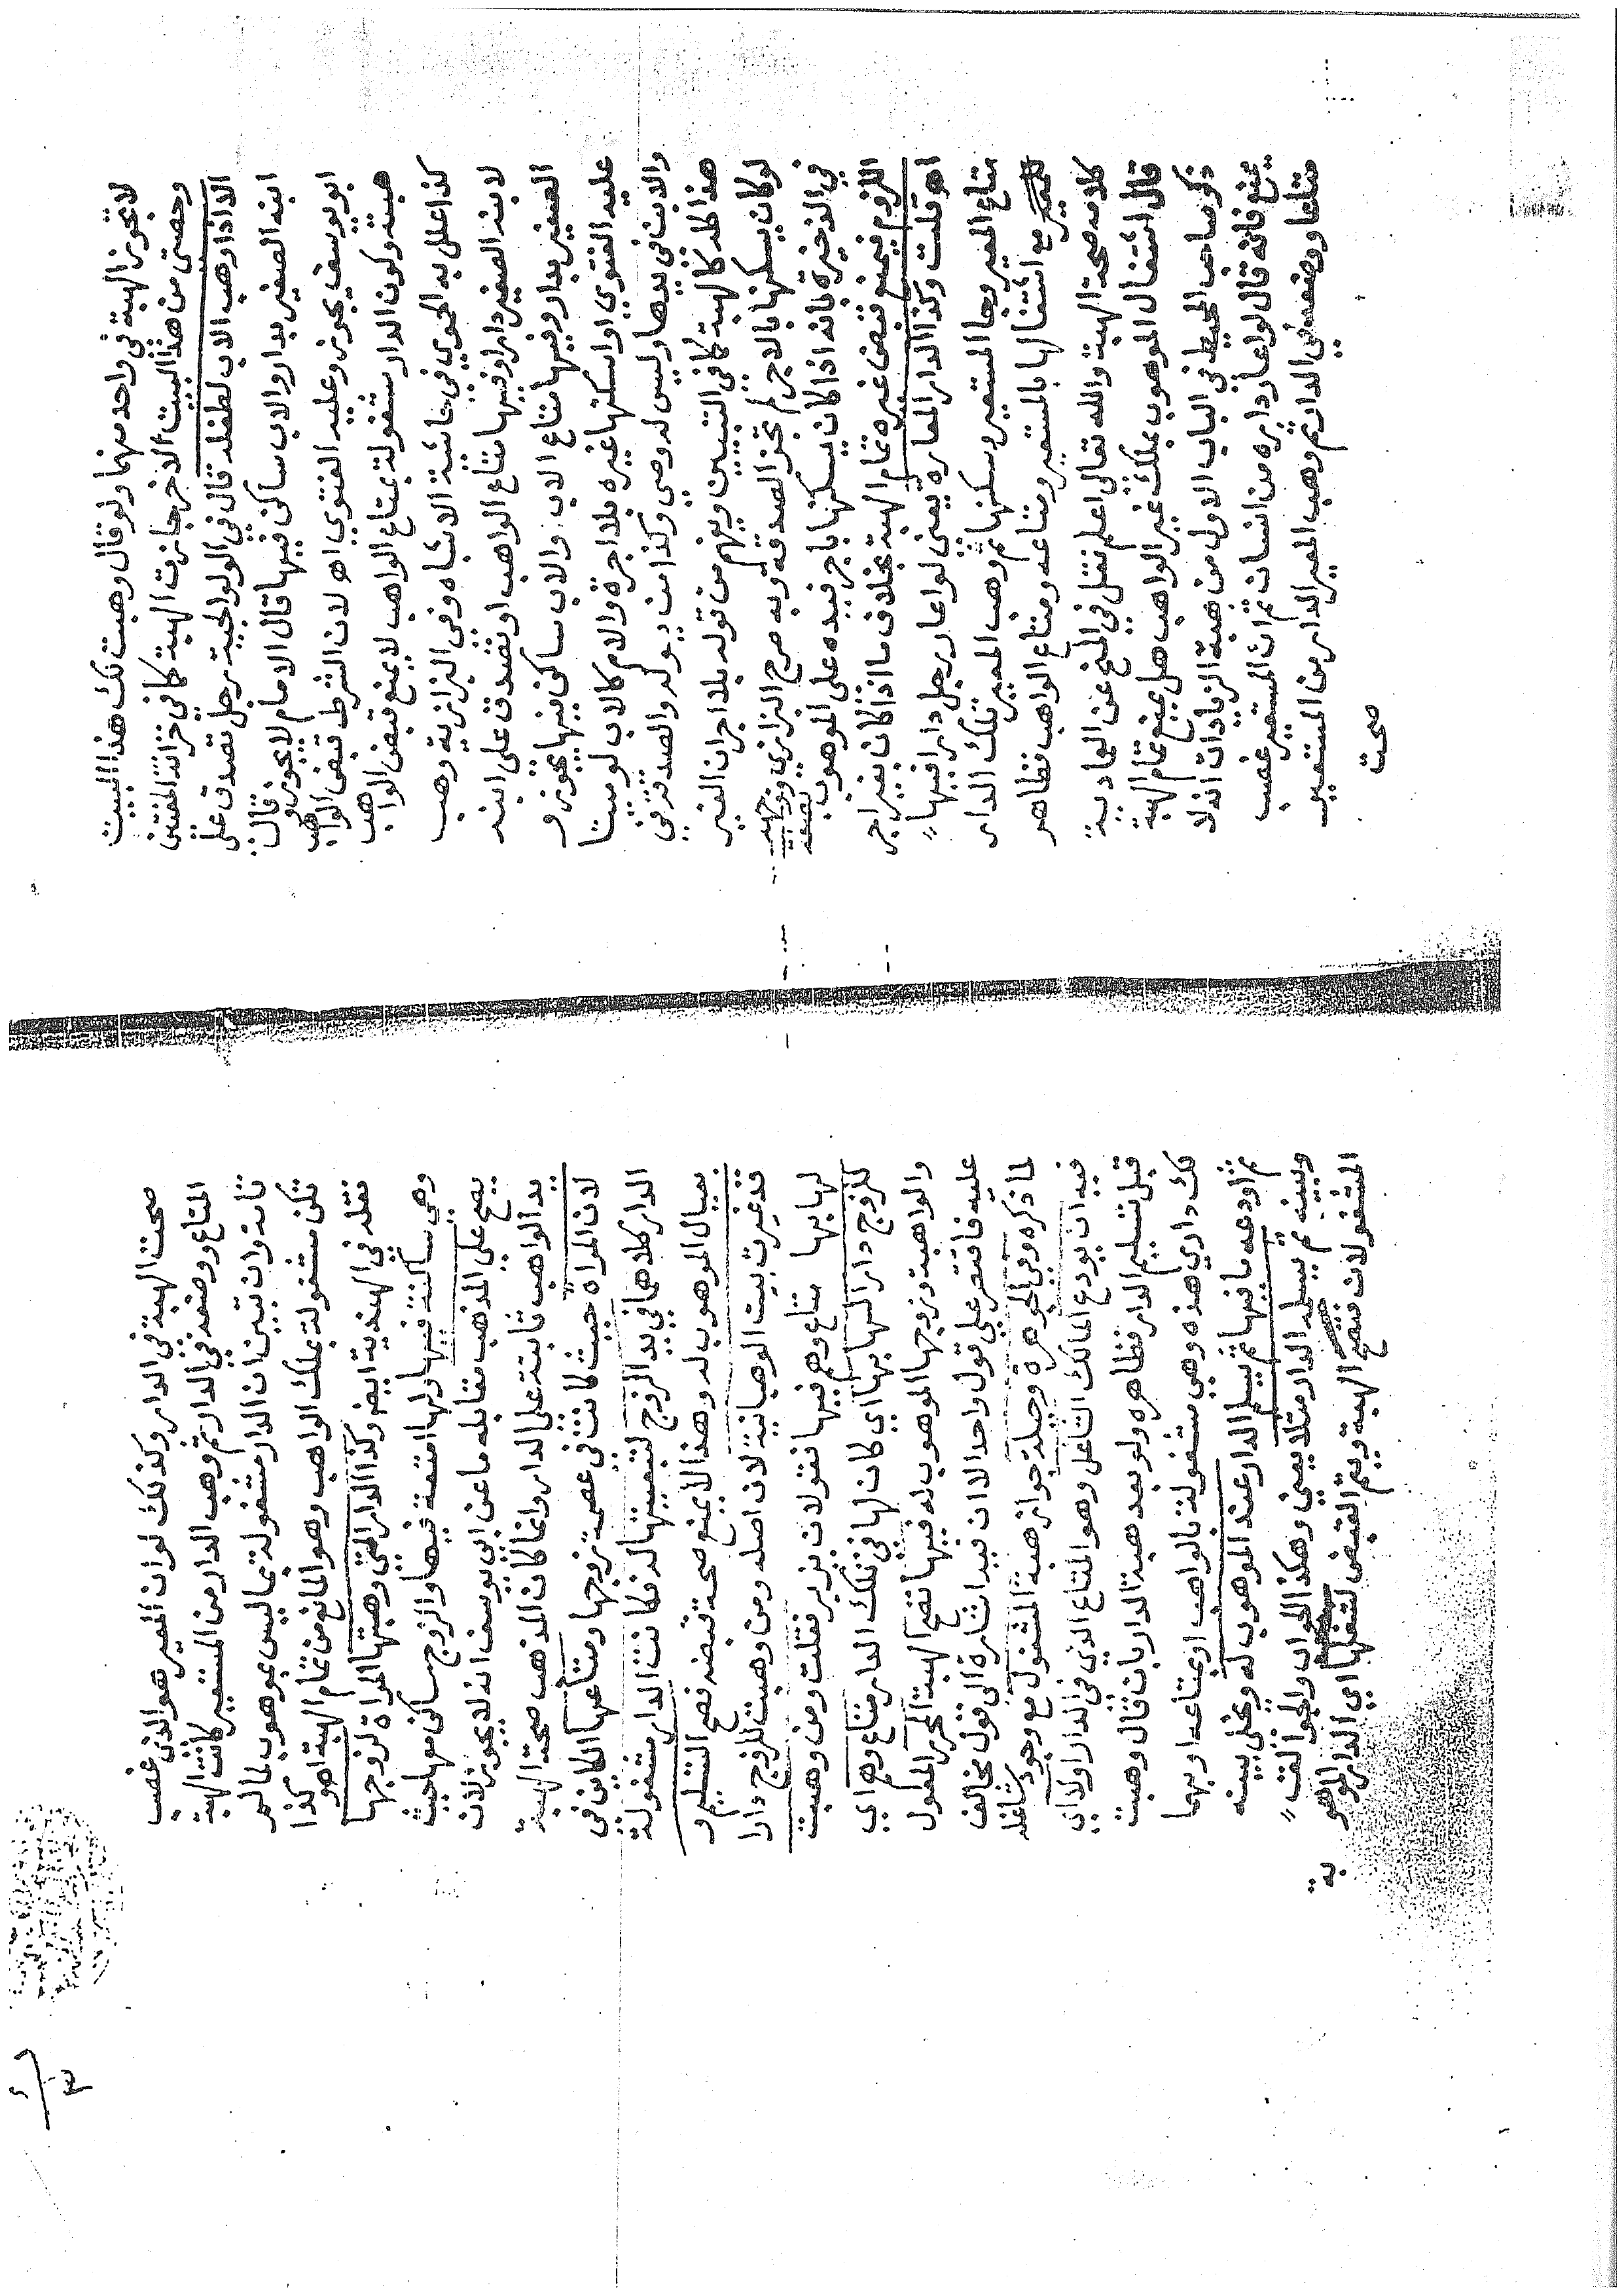 لا تجوز الهبة في واحد منهما ولو قال وهبت لك هذا البيت
وحصتي من هذا البيت الاخر جازت الهبة كما في خزانة المفتين
الا اذا وهب الاب لطفله قال في الولوالجية رجل تصدق على
ابنه الصغير بدار والاب ساكن فيها قال الامام لا يجوز وقال
ابو يوسف يجوز وعليه الفتوي اه لان الشرط قبض الواهب
هبته وكون الدار مشغولة بمتاع الواهب لا يمنع قبض الواهب
كذا علل به الحموي في حاشية الاشباه وفي البزازية وهب
لابنه الصغير دارا وفيها متاع الواهب او تصدق على ابنه
الصغير بدار وفيها متاع الاب والاب ساكن فيها يجوز و
عليه الفتوي او اسكنها غيره بلا اجرة والام كالاب لو ميتا
والابن في يدها وليس له وصي وكذا من يعوله والصدقة في
هذا كله كالهبة كما في التبيين ويفهم من قوله بلا اجر ان الغير
لو كان يسكنها بالاجر لم تجز الصدقة وبه صرح البزازي ووجهه
في الذخيرة بانه اذا كان يسكنها باجر فيده على الموهوب بصفة
اللزوم فيمنع قبض غيره تمام الهبة بخلاف ما اذا كان بغير اجر
اه قلت وكذا الدار المعارة يعني لو اعار رجل دارا فيها
متاع المعير وجا المستعير وسكنها ثم وهب المعير تلك الدار
مع اشتغالها بالمستعير ومتاعه ومتاع الواهب فظاهر
كلامه صحة الهبة والله تعالى اعلم نقل في المنح عن العمادية
قال اشتغال الموهوب بملك غير الواهب هل يمنع تمام الهبة
ذكر صاحب المحيط في الباب الاول من هبة الزيادات انه لا
يمنع فانه قال لو اعار داره من انسان ثم ان المستعير غصب
متاعا ووضعه في الدار ثم وهب المعير الدار من المستعير
صحت
صحت الهبة في الدار وكذلك لو ان المعير هو الذي غصب
المتاع ووضعه في الدار ثم وهب الدار من المستعير كانت الهبة
تامة وان تبين ان الدار مشغولة بما ليس بموهوب لما لم
تكن مشغولة بملك الواهب وهو المانع من تمام الهبة اه كذا
نقله في الهندية ايضا وكذا الدار التي وهبتها المراة لزوجها
وهي ساكنة فيها ولها امتعة فيها والزوج ساكن معها حيث
يصح على المذهب مقابله ما عن ابي يوسف انه لا يجوز لان
يد الواهب ثابتة على الدار وانما كان المذهب صحة الهبة
لان المراة حيث كانت في عصمة زوجها ومتاعها الكاين في
الدار كلاهما في يد الزوج لتبعيتها له فكانت الدار مشغولة
بعيال الموهوب له وهذا لا يمنع صحة قبضه فصح التسليم و
قد غيرت بيت الوهبانية لان اصله ومن وهبت للزوج دارا
لها بها متاع وهم فيها فقولان يزبر فقلت ومن وهبت
للزوج دارا لها بها اي كان لها في تلك الدار متاع وهم اي
والواهبة وزوجها الموهوب له فيها تصح الهبة المحرر المعول
عليه فاقتصر على قول واحد الا ان فيه اشارة الى قول مخالف
لما ذكره وفي الجوهرة وحيلة جواز هبة المشغول مع وجود شاغله
فيه ان يودع المالك الشاغل وهو المتاع الذي في الدار اولا اي
قبل تسليم الدار فظاهره ولو بعد هبة الدار بان قال وهبت
لك داري هذه وهي مشغولة بالواهب او بمتاعه او بهما
ثم أودعه ما فيها ثم يسلم الدار عند الموهوب له ويخلي بينه
وبينه ثم يسلمه الدار مثلا يعني وهكذا الجراب والجوالق
المشغولان فتصح الهبة ويتم القبض لشغلها اي الدار الموهو
بة